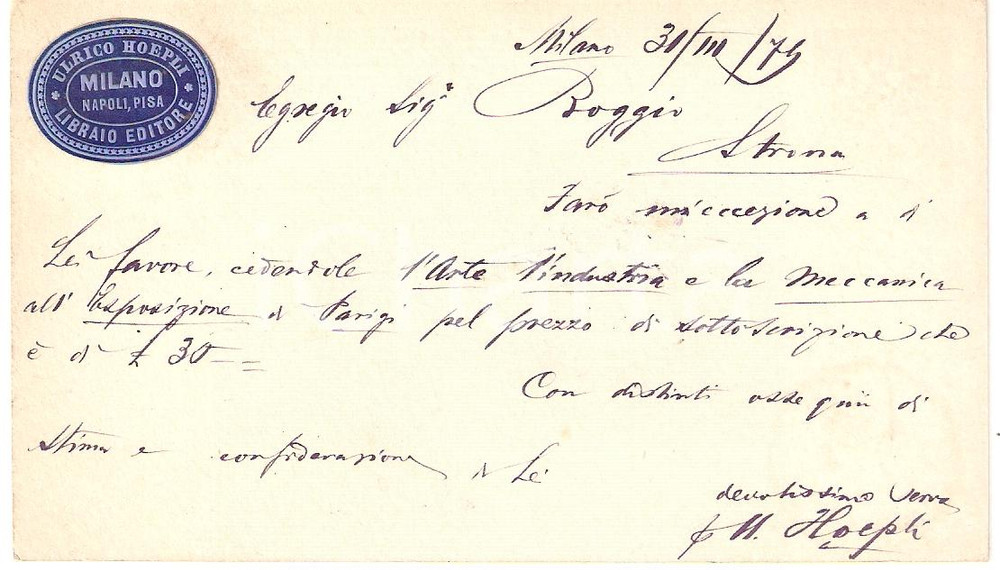 ULRICO HOEPLI
MILANO
NAPOLI, PISA
LIBRAIO EDITORE
Milano 31/III/79
Egregio Sigr Boggio
Strona
Farò un'eccezione a di
Lei favore, cedendole l'Arte l'industria e la Meccanica
all'Esposizione di Parigi pel prezzo di sottoscrizione che
è di £ 30
Con distinti ossequii di
stima e considerazione di Lei
devotissimo Servo
U. Hoepli